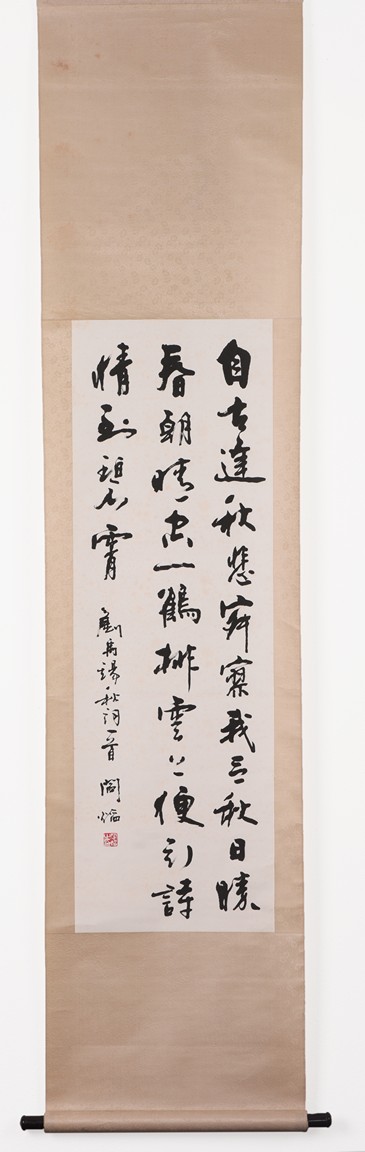 自古逢秋悲寂寥我言秋日勝
春朝晴空一鶴排雲上便引詩
情到碧霄
劉禹錫秋詞一首